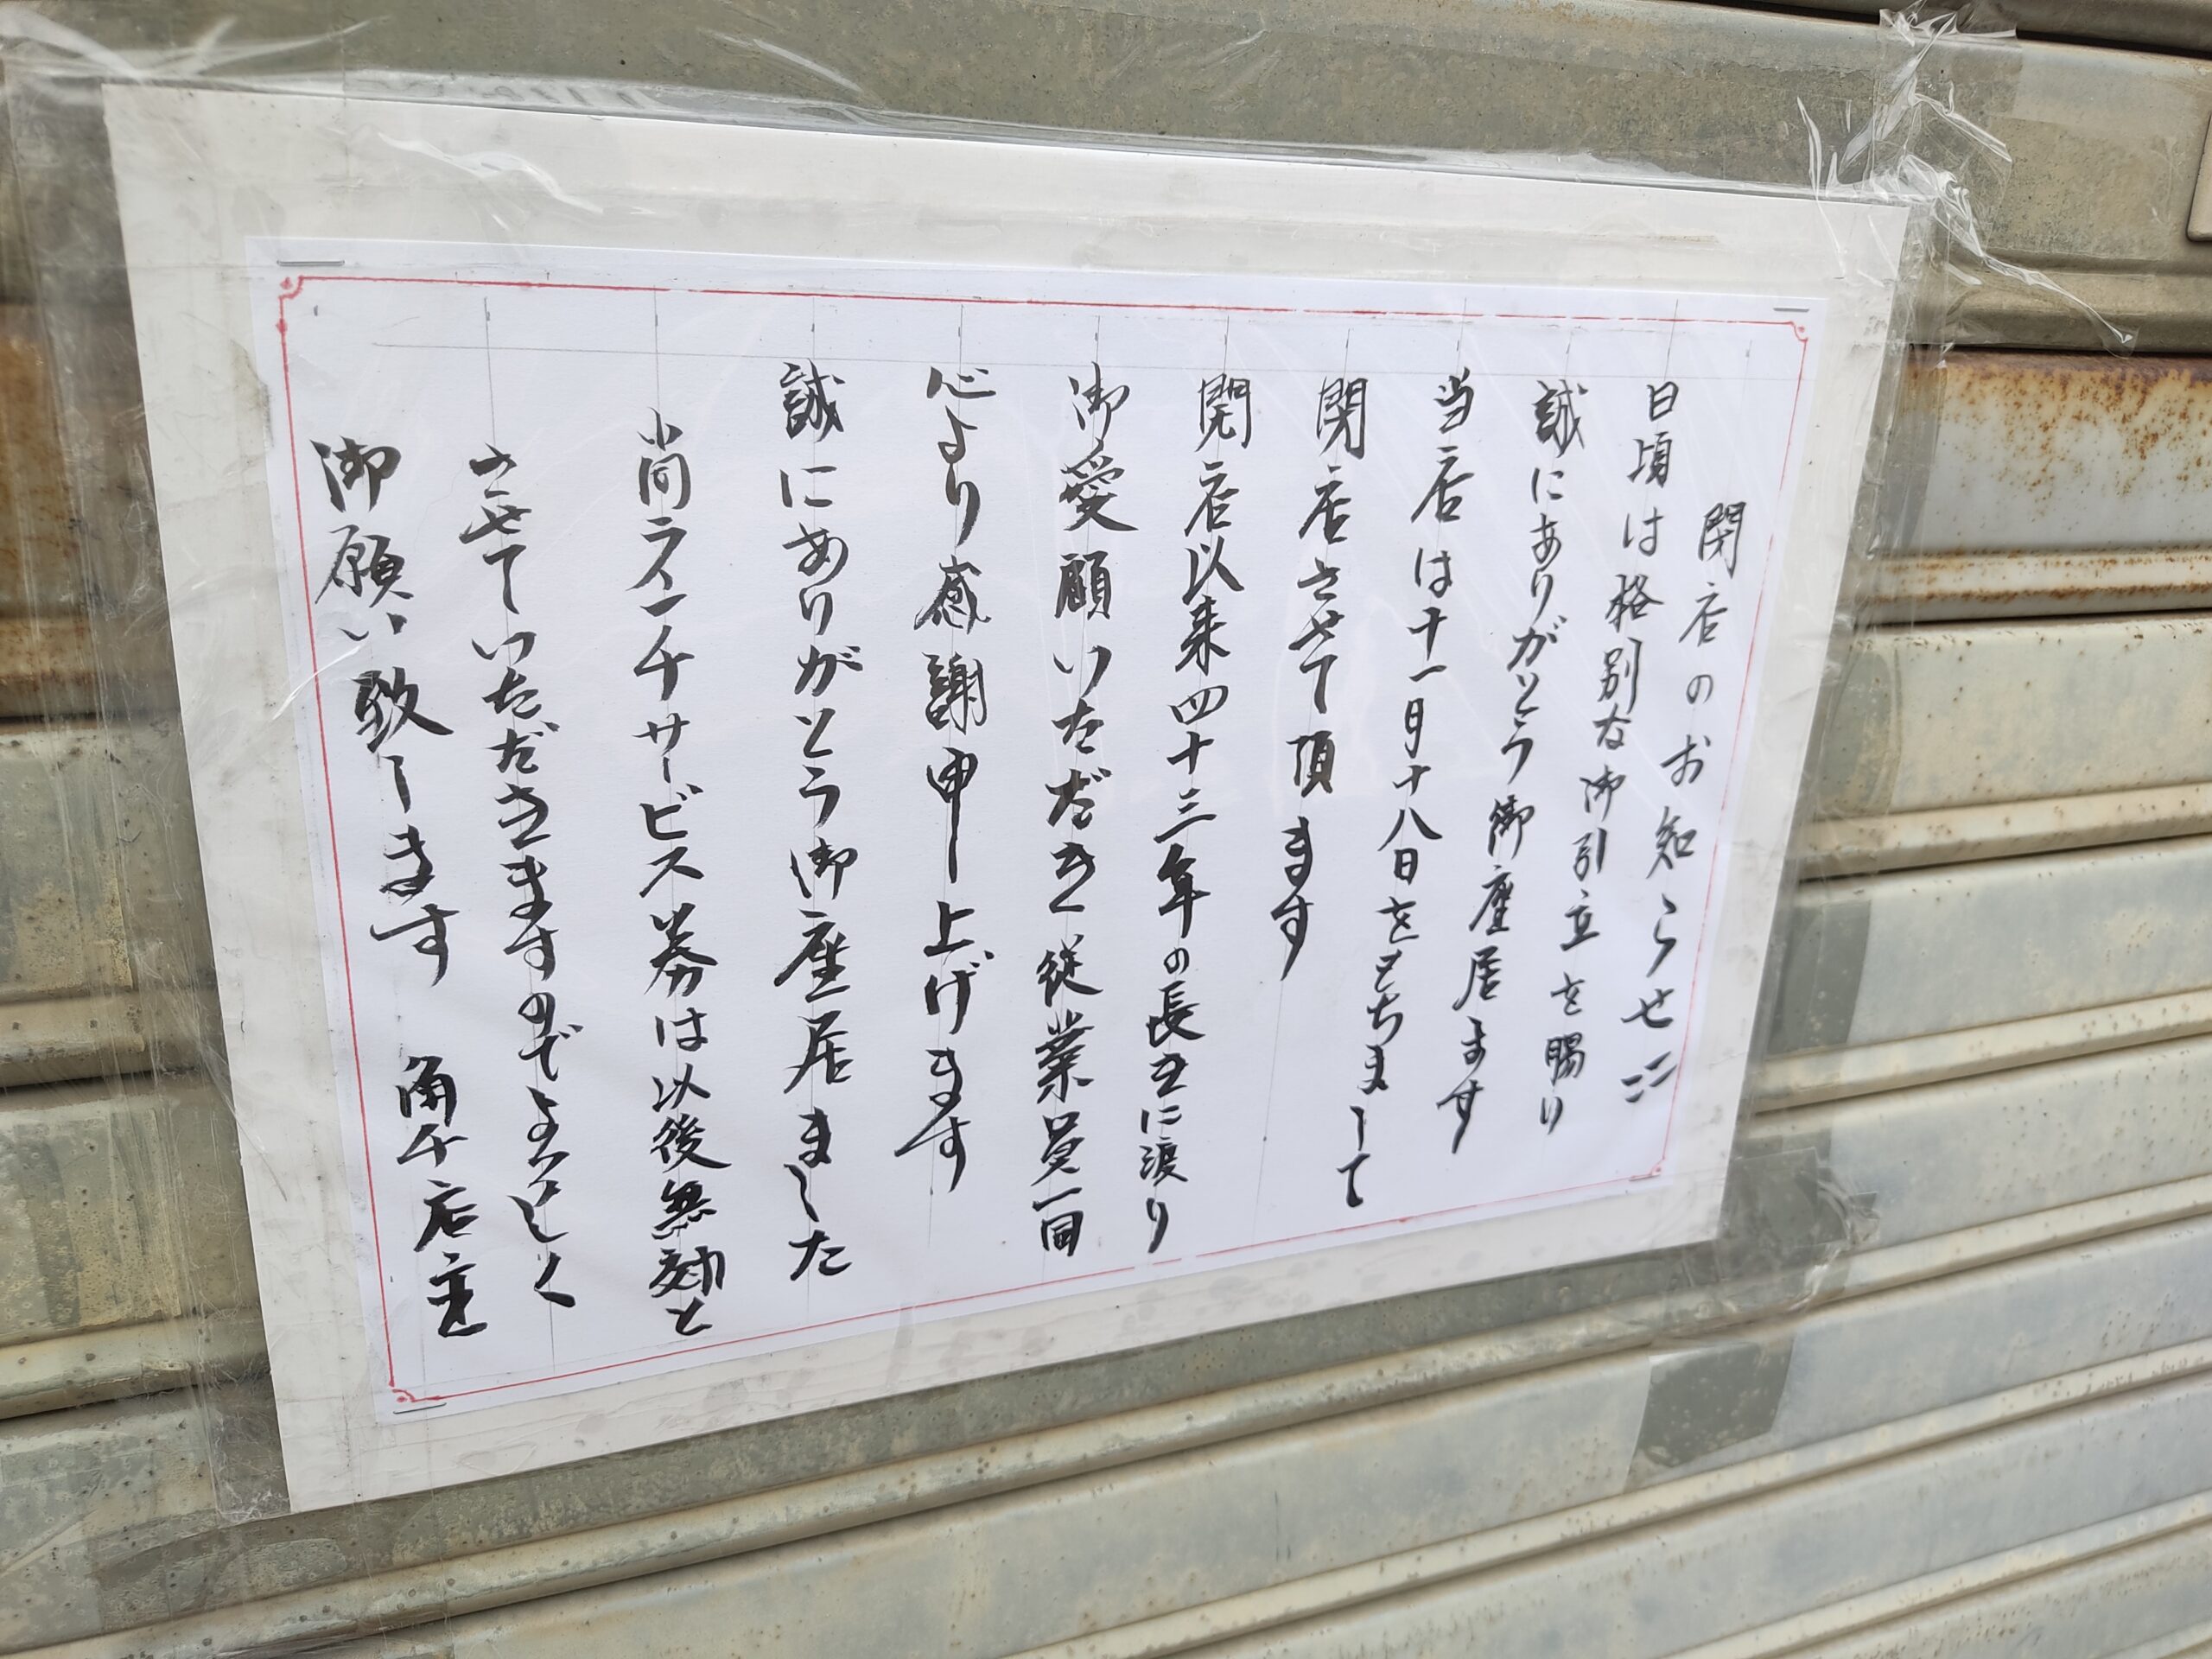 閉店のお知らせ
日頃は格別な御引立を賜り
誠にありがとう御座居ます
当店は十一月十八日をもちまして
閉店させて頂ます
開店以来四十三年の長きに渡り
御愛顧いただき従業員一同
心より感謝申し上げます
誠にありがとう御座居ました
尚ランチサービス券は以後無効と
させていただきますのでよろしく
御願い致します 角千店主